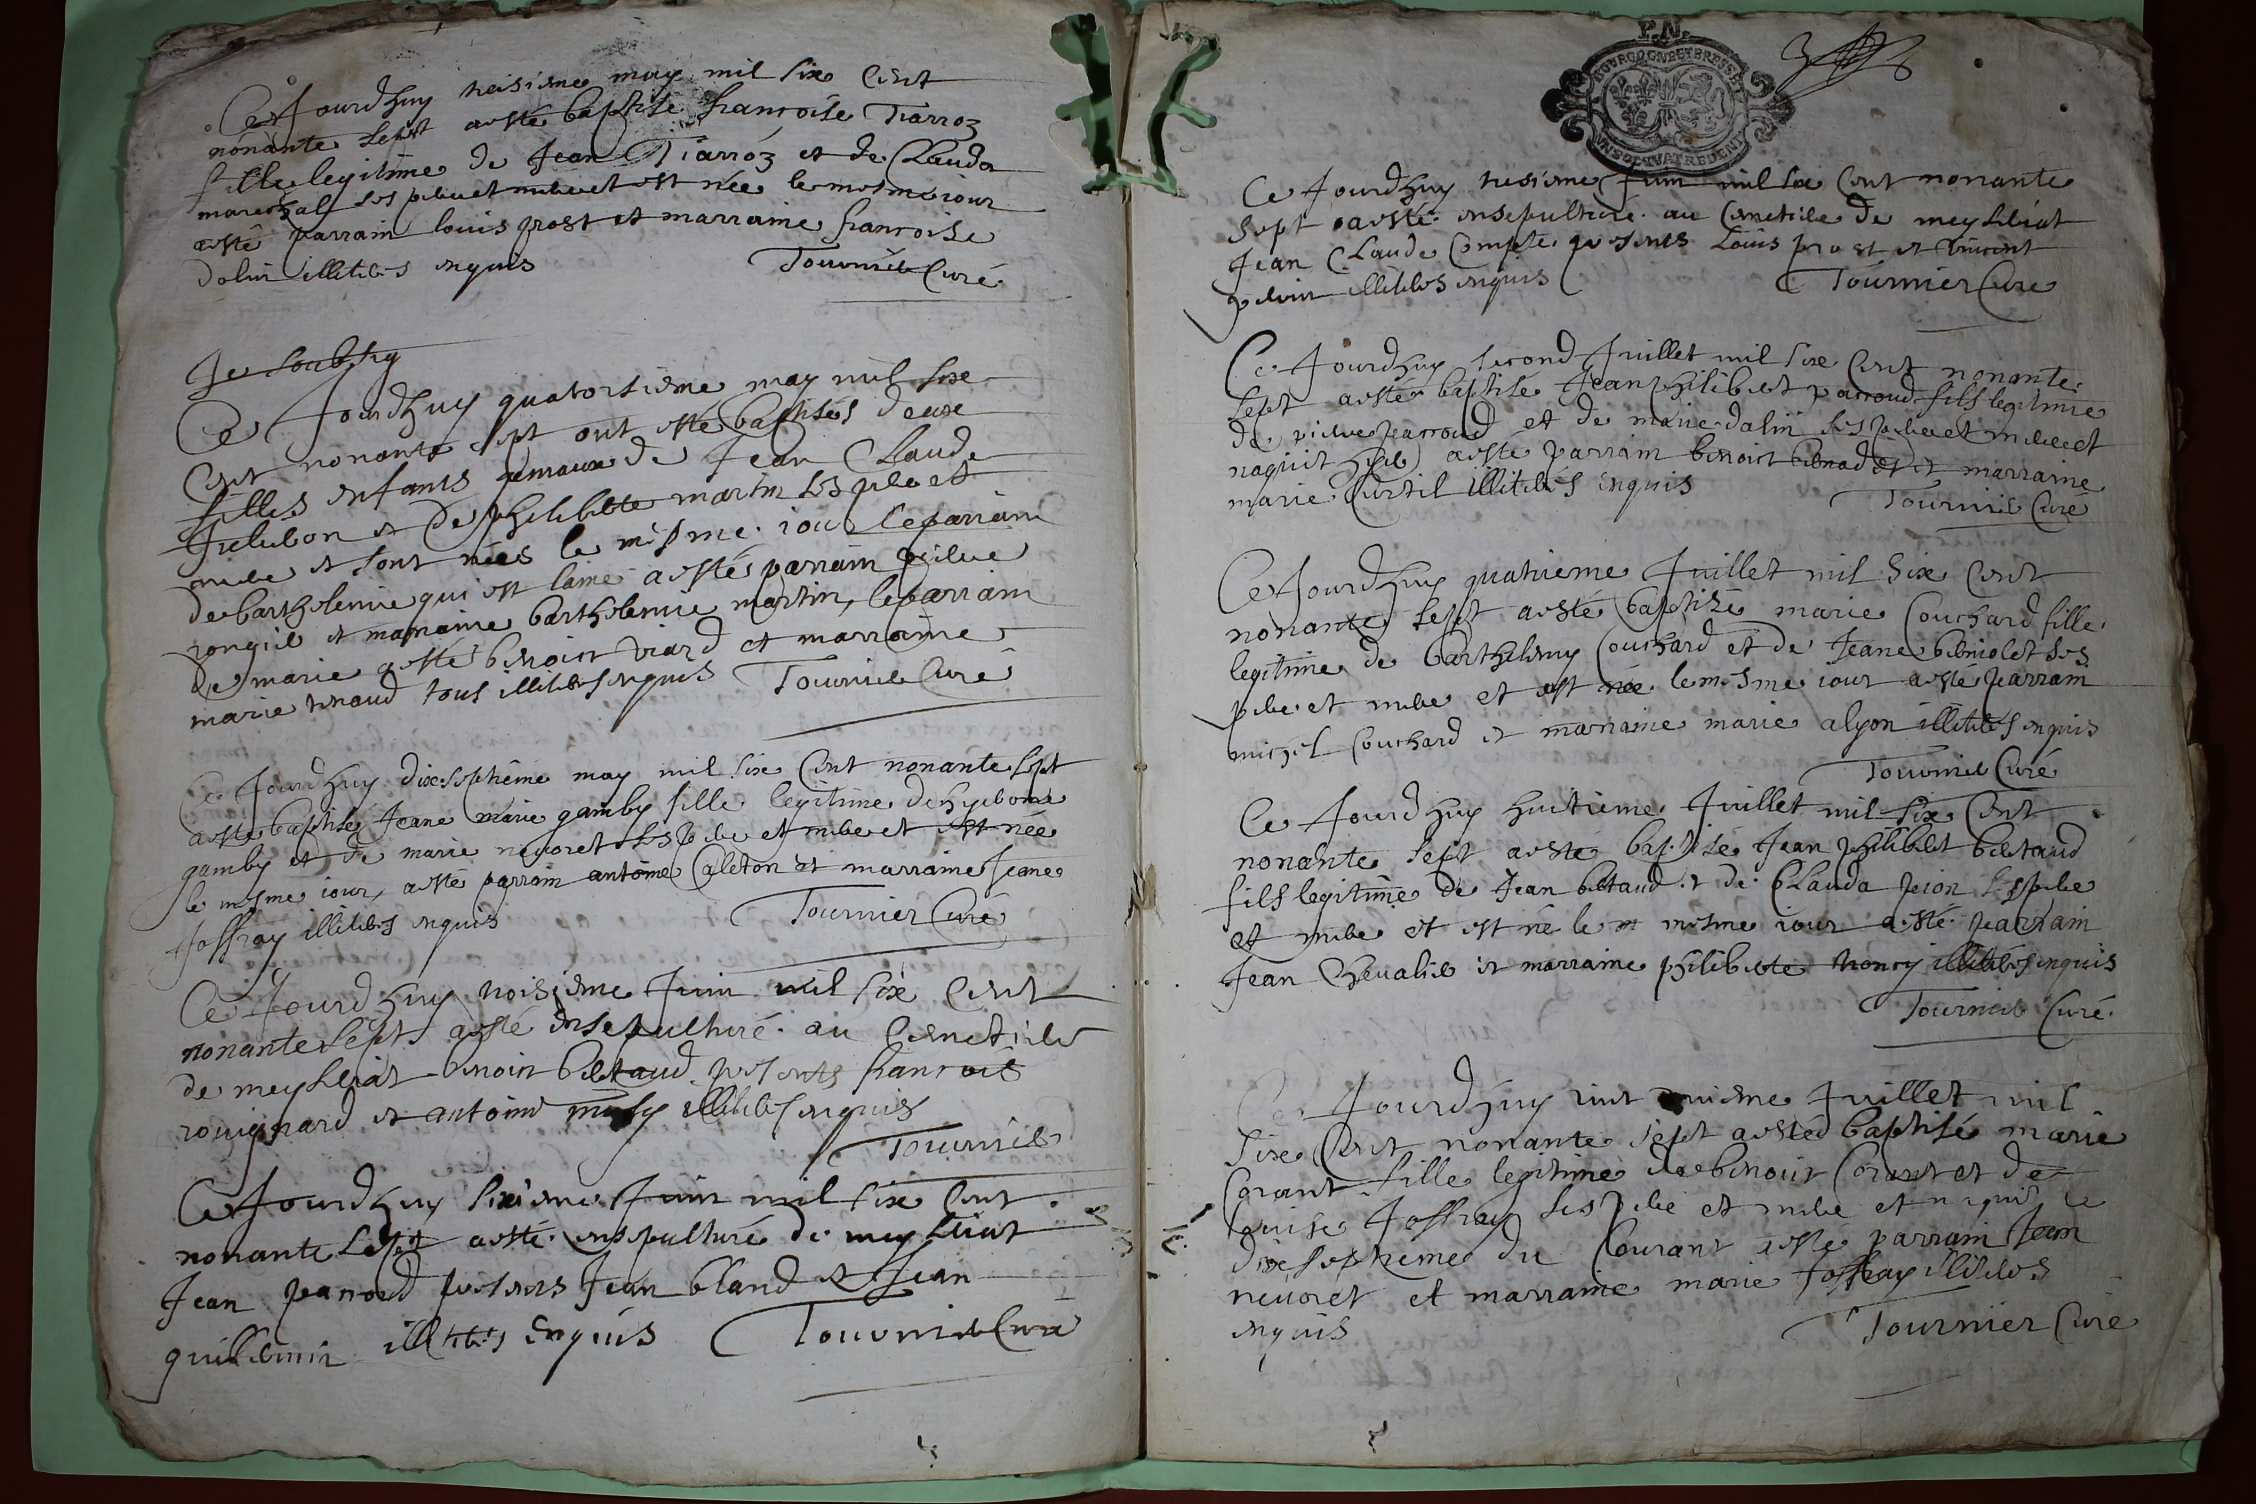 Ce Jourdhuy treisieme may mil six cent
nonante sept a esté baptisée francoise Tiarroz
fille legitime de Jean Tiarroz et de Clauda
mareschal ses pere et mere et est née le mesme jour
a esté parrain louis prost et marraine francoise
dalin illiteres enquis Tournier Curé
Je soubsig
Ce Jourdhuy quatorsieme may mil six
cent nonante sept ont esté baptisées deux
filles enfants jemaux de Jean Claude
et de philiberte martin ses pere et
mere et sont nées le mesme jour le parrain
de barthelemie qui est lainé a esté parrain
et marraine barthelemie martin, le parrain
de marie a esté benoict viard et marraine
marie renaud tous illiteres enquis Tournier Curé
Ce Jourdhuy dixseptieme may mil six cent nonante sept
a esté baptisé Jeane marie gamby fille legitime de
gamby et de marie nevoret ses pere et mere et est née
le mesme jour, a esté parrain antoine Caleton et marraine Jeane
Joffray illiteres enquis Tournier Curé
Ce Jourdhuy troisieme Juin mil six cent
nonante sept a esté ensepulturé au Cemetiere
de meylliat benoict bertaud presents francois
rouignard et antoine illiteres enquis
Tournier
Ce Jourdhuy sixieme Juin mil six cent
nonante sept a esté ensepulturé de meylliat
Jean parroud presents Jean bland et Jean
guillermin illiteres enquis Tournier Curé
P.N.
BOURGOGNE ET BRESSE
UN SOL QUATRE DEN
Ce Jourdhuy tresieme Juin mil six cent nonante
sept a esté ensepulturé au Cemetiere de meylliat
Jean Claude Compte presents Louis prost et vincent
illiteres enquis Tournier Curé
Ce Jourdhuy second Juillet mil six cent nonante
sept a esté baptisé Jean philibert parroud fils legitime
de pierre parroud et de marie dalin ses pere et mere et
naquit hyer a esté parrain benoict et marraine
marie Curtil illiteres enquis Tournier Curé
Ce Jourdhuy quatrieme Juillet mil six cent
nonante sept a esté baptisée marie Couchard fille
legitime de barthelemy Couchard et de Jeane berniolet ses
pere et mere et est née le mesme jour a esté parrain
michel Couchard et marraine marie alyon illiteres enquis
Tournier Curé
Ce Jourdhuy huitieme Juillet mil six cent
nonante sept a esté baptisé Jean philibert bertaud
fils legitime de Jean bertaud et de Clauda pion ses pere
et mere et est né le m mesme jour a esté parrain
Jean Chevalier et marraine philiberte illiteres enquis
Tournier Curé
Ce Jourdhuy vint unieme Juillet mil
six cent nonante sept a esté baptisée marie
Corant fille legitime de benoict Corant et de
louise Joffray ses pere et mere et naquit le
dixseptieme du Courant a esté parrain Jean
nevoret et marraine marie Joffray illiteres
enquis Tournier Curé